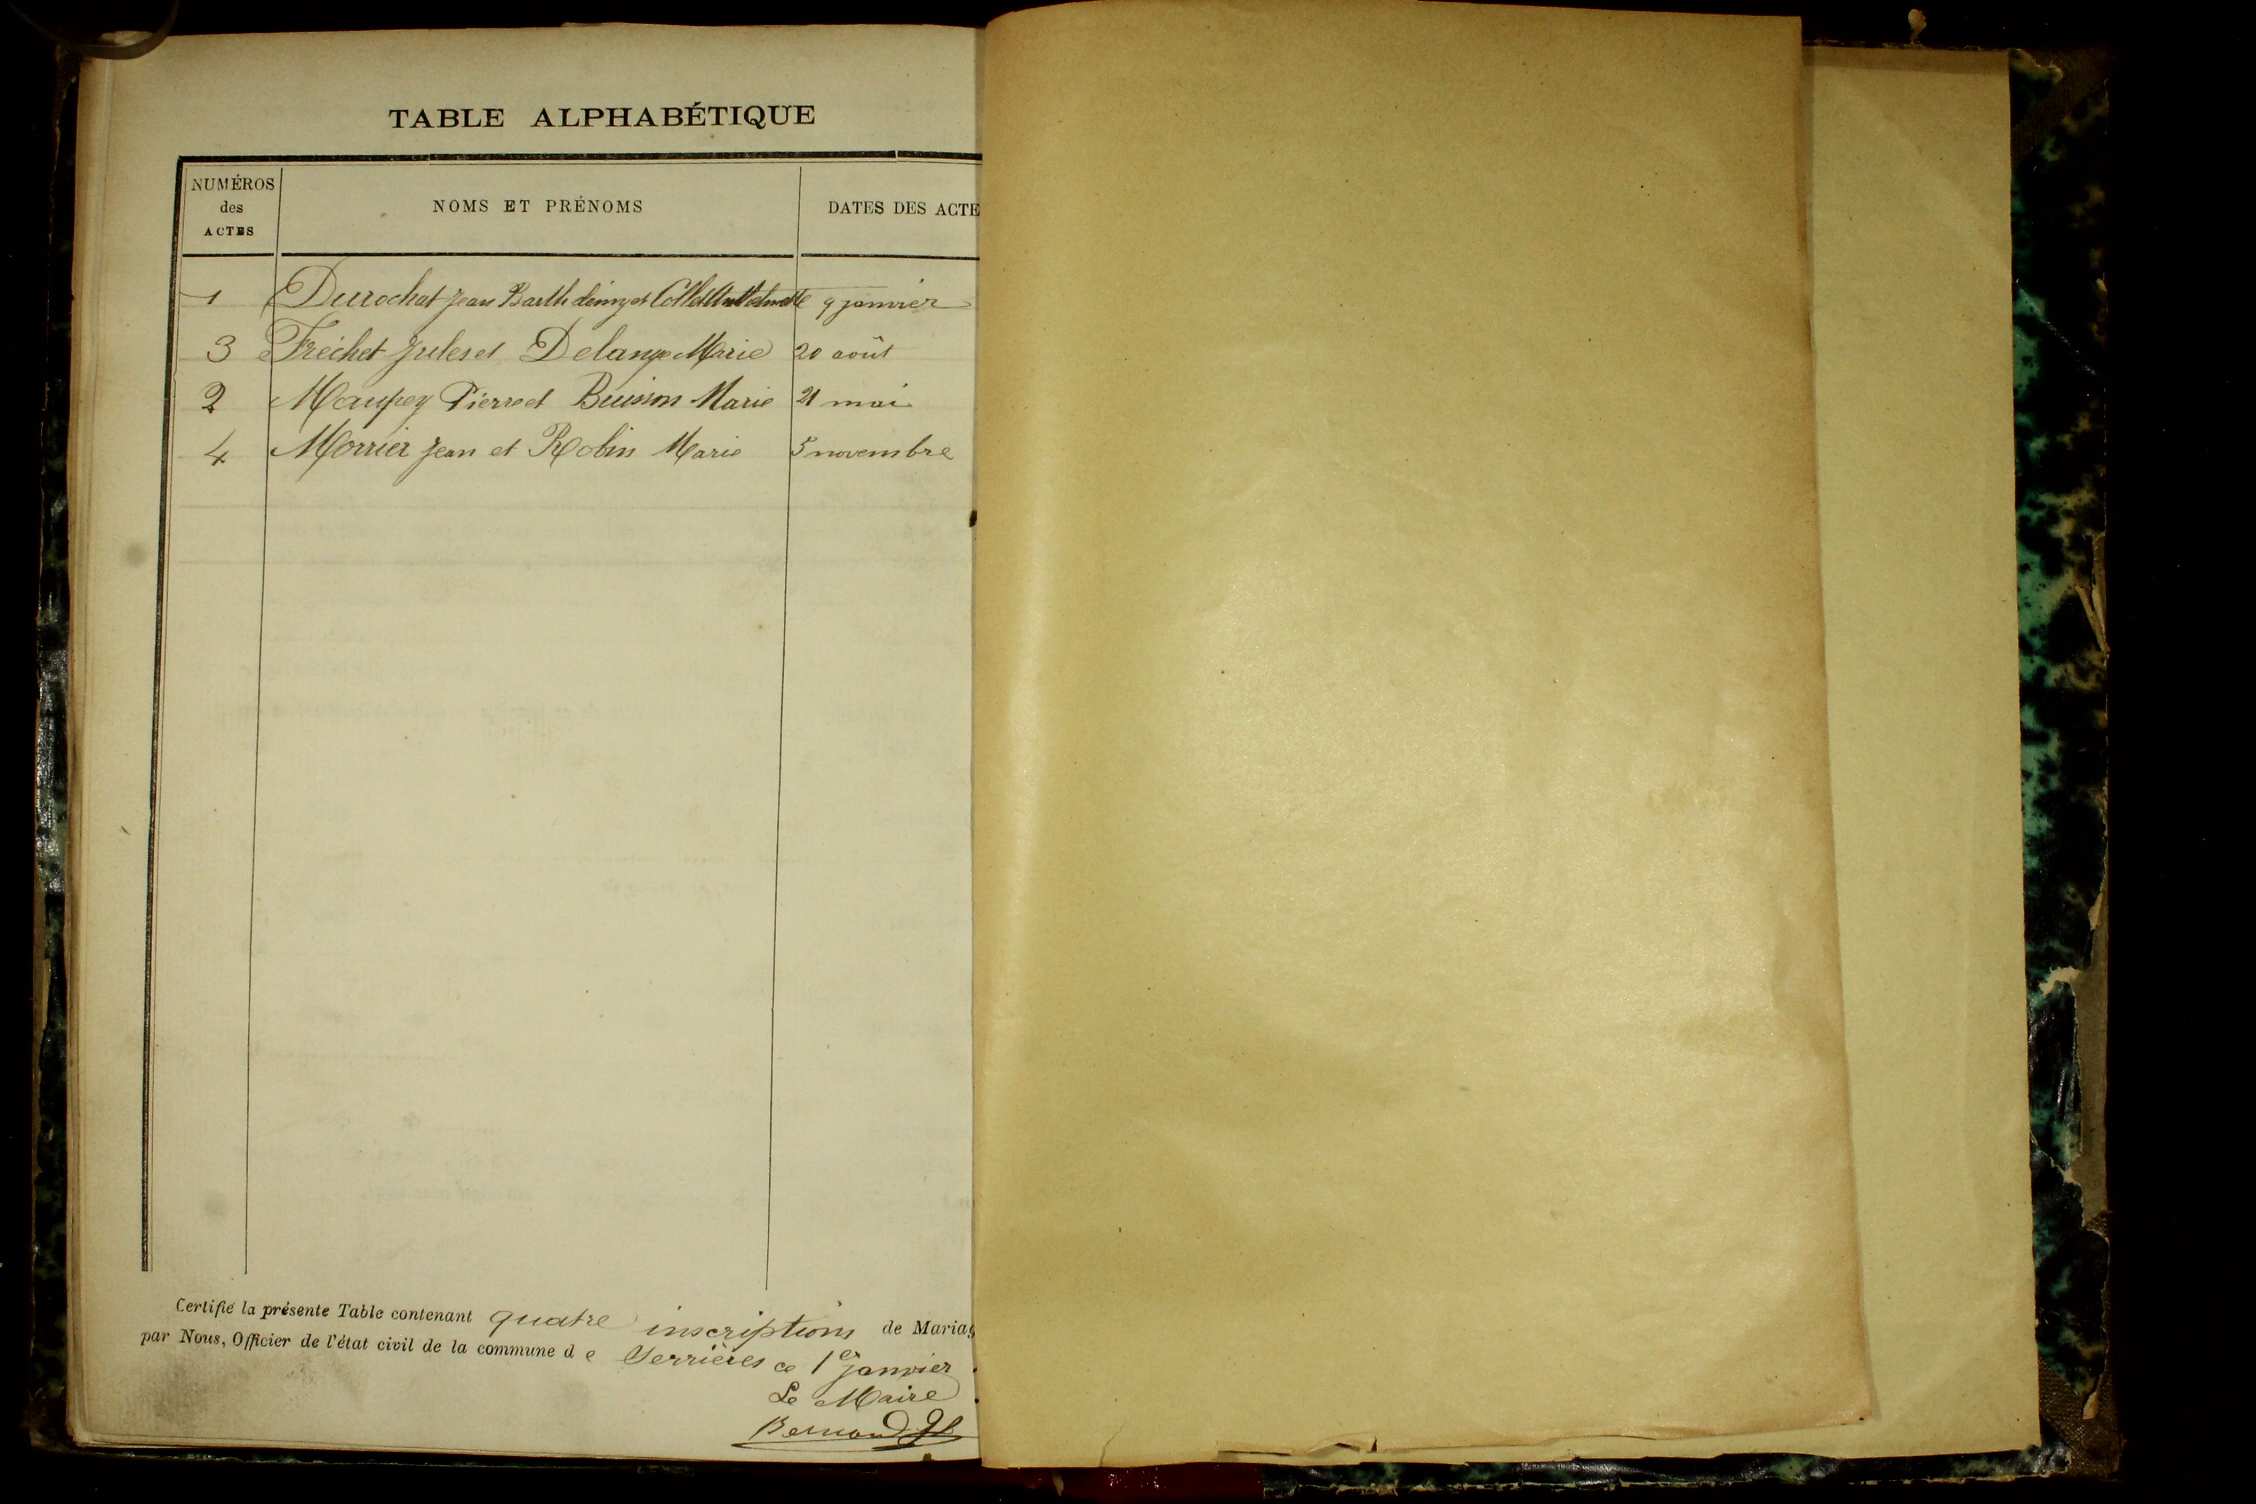 TABLE ALPHABÉTIQUE
NUMÉROS des ACTES
NOMS ET PRÉNOMS
DATES DES ACTE
1 Durochat Jean Barthélémy et Collet Antoinette 9 janvier
3 Fréchet Jules et Delange Marie 20 août
2 Maupey Pierre et Buisson Marie 21 mai
4 Morrier Jean et Robin Marie 5 novembre
Certifié la présente Table contenant quatre inscriptions de Mariag
par Nous, Officier de l'état civil de la commune de Serrières ce 1er janvier
Le Maire
Bernard